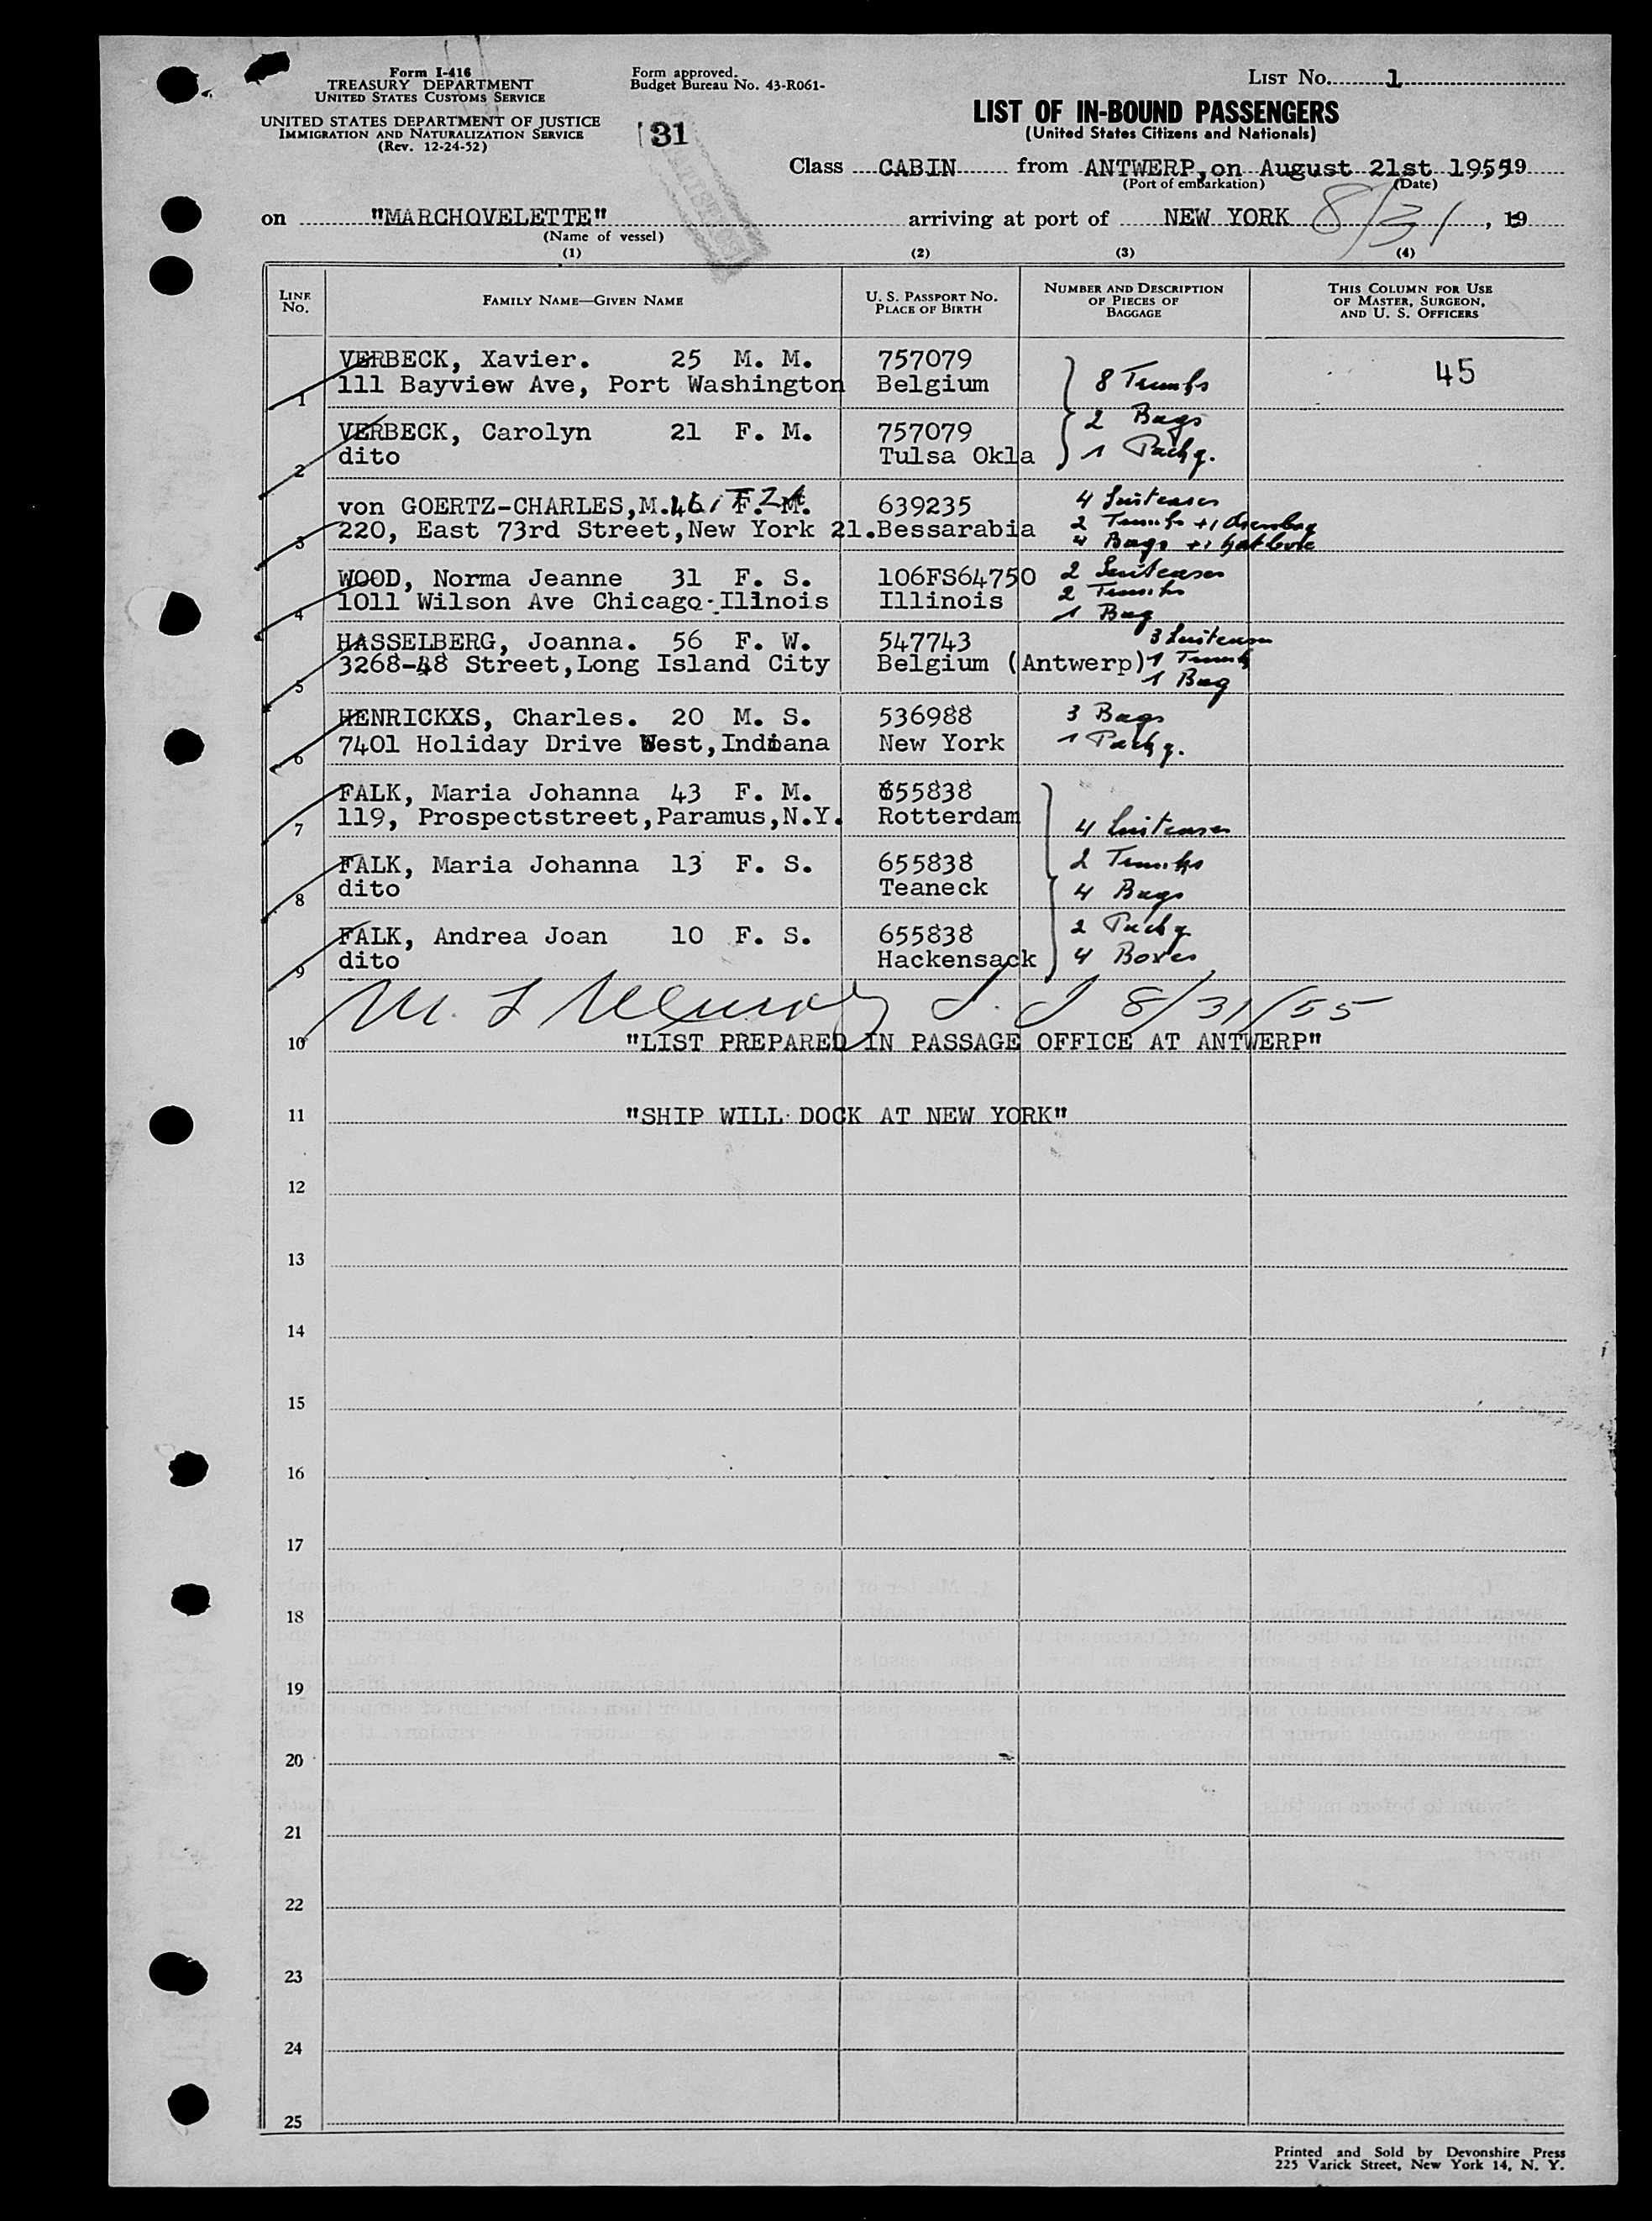 Form I-416
TREASURY DEPARTMENT
UNITED STATES CUSTOMS SERVICE
UNITED STATES DEPARTMENT OF JUSTICE
IMMIGRATION AND NATURALIZATION SERVICE
(Rev. 12-24-52)
Form approved.
Budget Bureau No. 43-R061-
31
LIST No. 1
LIST OF IN-BOUND PASSENGERS
(United States Citizens and Nationals)
Class CABIN from ANTWERP, on August 21st 1955 19
(Port of embarkation) (Date)
on "MARCHOVELETTE" arriving at port of NEW YORK 8/31, 19
(Name of vessel)
(1) (2) (3) (4)
LINE No. FAMILY NAME—GIVEN NAME U. S. PASSPORT No. PLACE OF BIRTH NUMBER AND DESCRIPTION OF PIECES OF BAGGAGE THIS COLUMN FOR USE OF MASTER, SURGEON, AND U. S. OFFICERS
VERBECK, Xavier. 25 M. M. 757079 45
1 111 Bayview Ave, Port Washington Belgium 8 Trunks
2 Bags
VERBECK, Carolyn 21 F. M. 757079
2 dito Tulsa Okla 1 Packg.
von GOERTZ-CHARLES,M. 46 F. M. 639235 4 Suitcases
3 220, East 73rd Street,New York 21. Bessarabia 2 Trunks +1
4 Bags +1 hatbox
WOOD, Norma Jeanne 31 F. S. 106FS64750 2 Suitcases
4 1011 Wilson Ave Chicago-Ilinois Illinois 2 Trunks
1 Bag
HASSELBERG, Joanna. 56 F. W. 547743 3 Suitcases
5 3268-48 Street,Long Island City Belgium (Antwerp) 1 Trunk
1 Bag
HENRICKXS, Charles. 20 M. S. 536988 3 Bags
6 7401 Holiday Drive West,Indiana New York 1 Packg.
FALK, Maria Johanna 43 F. M. 655838
7 119, Prospectstreet,Paramus,N.Y. Rotterdam 4 Suitcases
FALK, Maria Johanna 13 F. S. 655838 2 Trunks
8 dito Teaneck 4 Bags
FALK, Andrea Joan 10 F. S. 655838 2 Packg
9 dito Hackensack 4 Boxes
8/31/55
10 "LIST PREPARED IN PASSAGE OFFICE AT ANTWERP"
11 "SHIP WILL DOCK AT NEW YORK"
12
13
14
15
16
17
18
19
20
21
22
23
24
25
Printed and Sold by Devonshire Press
225 Varick Street, New York 14, N. Y.